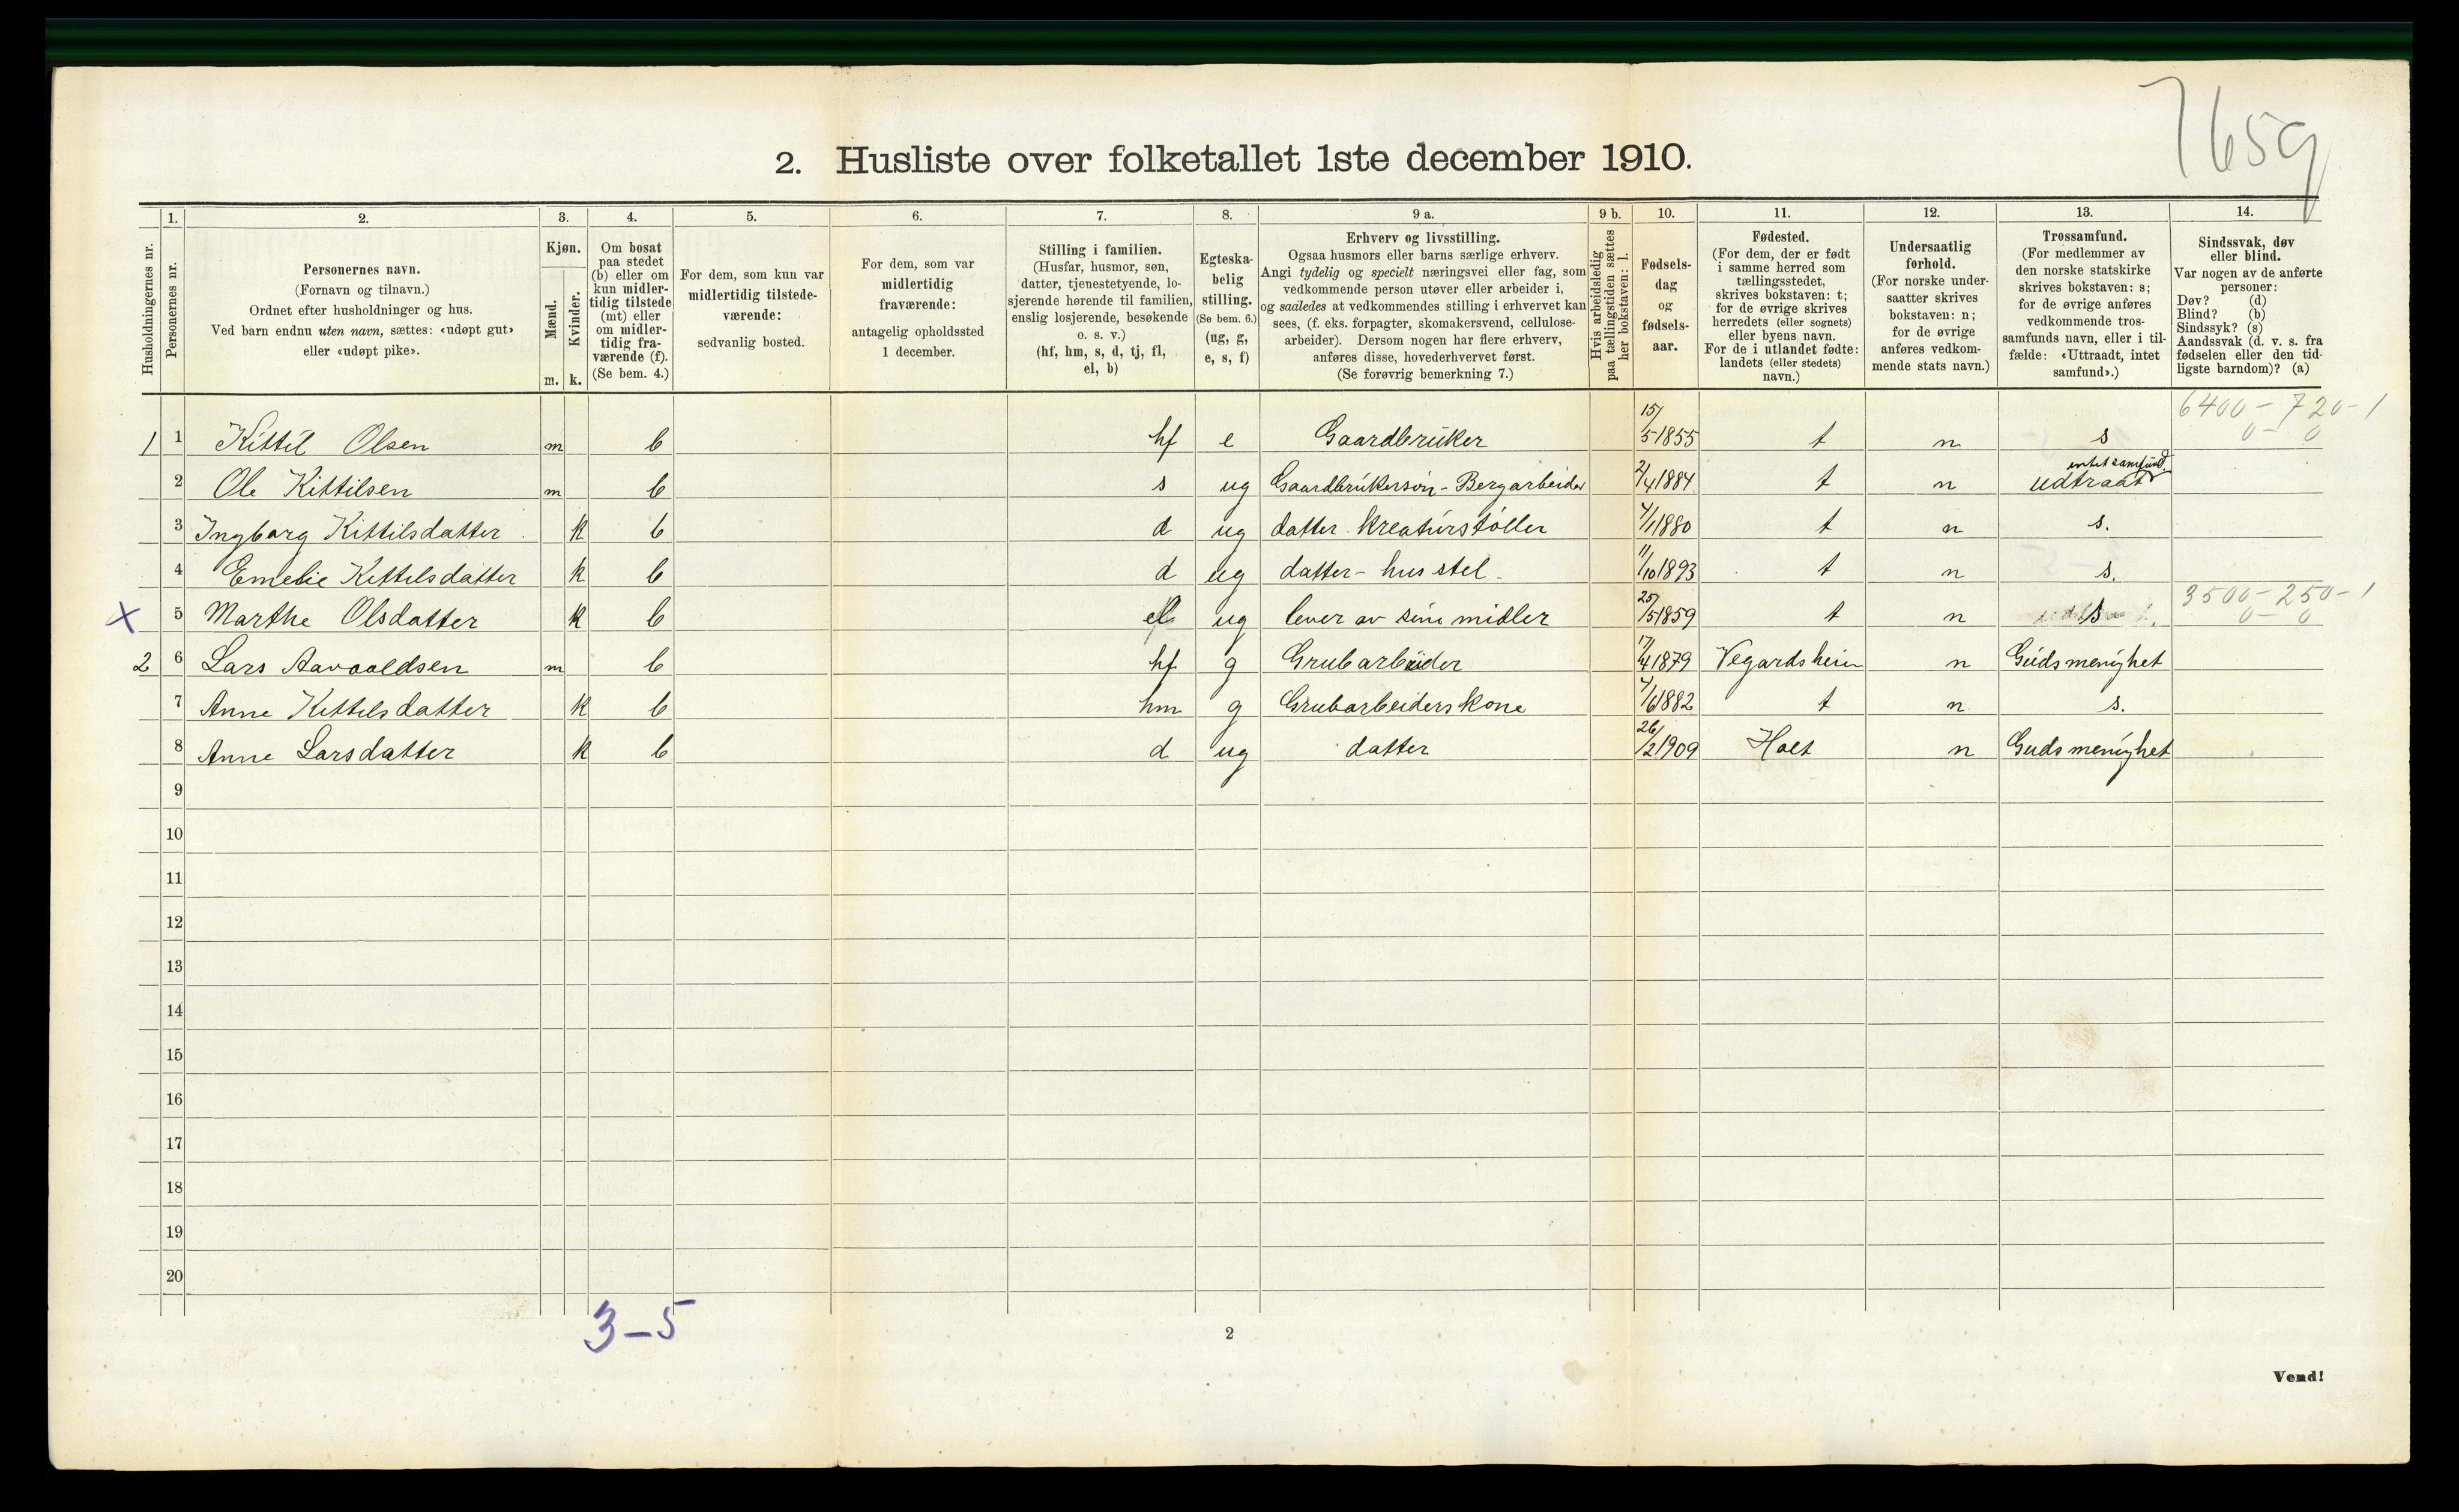 7659
2. Husliste over folketallet 1ste december 1910.
Husholdningernes nr.
1.
Personernes nr.
2.
Personernes navn.
(Fornavn og tilnavn.)
Ordnet efter husholdninger og hus.
Ved barn endnu uten navn, sættes: «udøpt gut»
eller «udøpt pike».
3.
Kjøn.
Mænd.
Kvinder.
m. k.
4.
Om bosat
paa stedet
(b) eller om
kun midler-
tidig tilstede
(mt) eller
om midler-
tidig fra-
værende (f).
(Se bem. 4.)
5.
For dem, som kun var
midlertidig tilstede-
værende:
sedvanlig bosted.
6.
For dem, som var
midlertidig
fraværende:
antagelig opholdssted
1 december.
7.
Stilling i familien.
(Husfar, husmor, søn,
datter, tjenestetyende, lo-
sjerende hørende til familien,
enslig losjerende, besøkende
o. s. v.)
(hf, hm, s, d, tj, fl,
el, b)
8.
Egteska-
belig
stilling.
(Se bem. 6.)
(ug, g,
e, s, f)
9 a.
Erhverv og livsstilling.
Ogsaa husmors eller barns særlige erhverv.
Angi tydelig og specielt næringsvei eller fag, som
vedkommende person utøver eller arbeider i,
og saaledes at vedkommendes stilling i erhvervet kan
sees, (f. eks. forpagter, skomakersvend, cellulose-
arbeider). Dersom nogen har flere erhverv,
anføres disse, hovederhvervet først.
(Se forøvrig bemerkning 7.)
9 b.
Hvis arbeidsledig
paa tællingstiden sættes
her bokstaven: l.
10.
Fødsels-
dag
og
fødsels-
aar.
11.
Fødested.
(For dem, der er født
i samme herred som
tællingsstedet,
skrives bokstaven: t;
for de øvrige skrives
herredets (eller sognets)
eller byens navn.
For de i utlandet fødte:
landets (eller stedets)
navn.)
12.
Undersaatlig
forhold.
(For norske under-
saatter skrives
bokstaven: n;
for de øvrige
anføres vedkom-
mende stats navn.)
13.
Trossamfund.
(For medlemmer av
den norske statskirke
skrives bokstaven: s;
for de øvrige anføres
vedkommende tros-
samfunds navn, eller i til-
fælde: «Uttraadt, intet
samfund».)
14.
Sindssvak, døv
eller blind.
Var nogen av de anførte
personer:
Døv? (d)
Blind? (b)
Sindssyk? (s)
Aandssvak (d. v. s. fra
fødselen eller den tid-
ligste barndom)? (a)
6400 - 720 - 1
0 - 0
1 1 Kittil Olsen m b hf e Gaardbruker 15/5 1855 t n s
2 Ole Kittilsen m b s ug Gaardbrukersøn - Bergarbeider 2/4 1884 t n udtraat
intet samfund
3 Ingborg Kittilsdatter k b d ug datter kreaturstøller 4/1 1880 t n s.
4 Emelie Kittilsdatter k b d ug datter - hus stel 11/10 1893 t n s.
3500 - 250 - 1
0 - 0
x 5 Marthe Olsdatter k b el ug lever av sine midler 25/5 1859 t n s
2 6 Lars Aavoldsen m b hf g Grubarbeider 17/4 1879 Vegardsheim n Guds menighet
7 Anne Kittilsdatter k b hm g Grubarbeiders kone 4/6 1882 t n s.
8 Anne Larsdatter k b d ug datter 26/2 1909 Holt n Guds menighet
9
10
11
12
13
14
15
16
17
18
19
20
3 - 5
2
Vend!